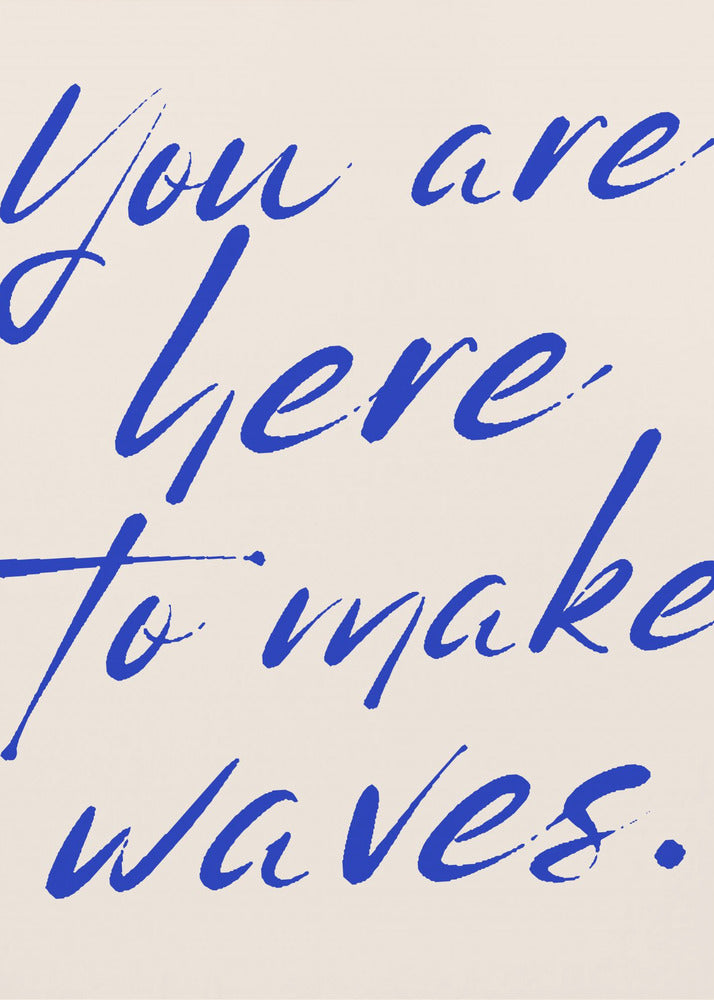 You are
here
to make
waves.